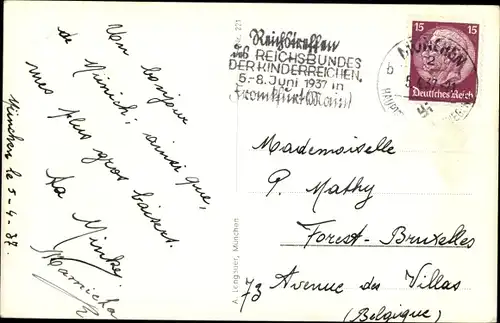 Un bonjour
de Münich, ainsi que,
mes plus gros baisers.
Ta Minkej
München le 5-4-37.
Nr. 221
A. Lengauer, München
Reichstreffen
des REICHSBUNDES
DER KINDERREICHEN.
5.-8. Juni 1937 in
Frankfurt (Main)
MÜNCHEN
2
15 15
Deutsches Reich
Mademoiselle
P. Mathy
Forest-Bruxelles
73 Avenue des Villas
(Belgique)